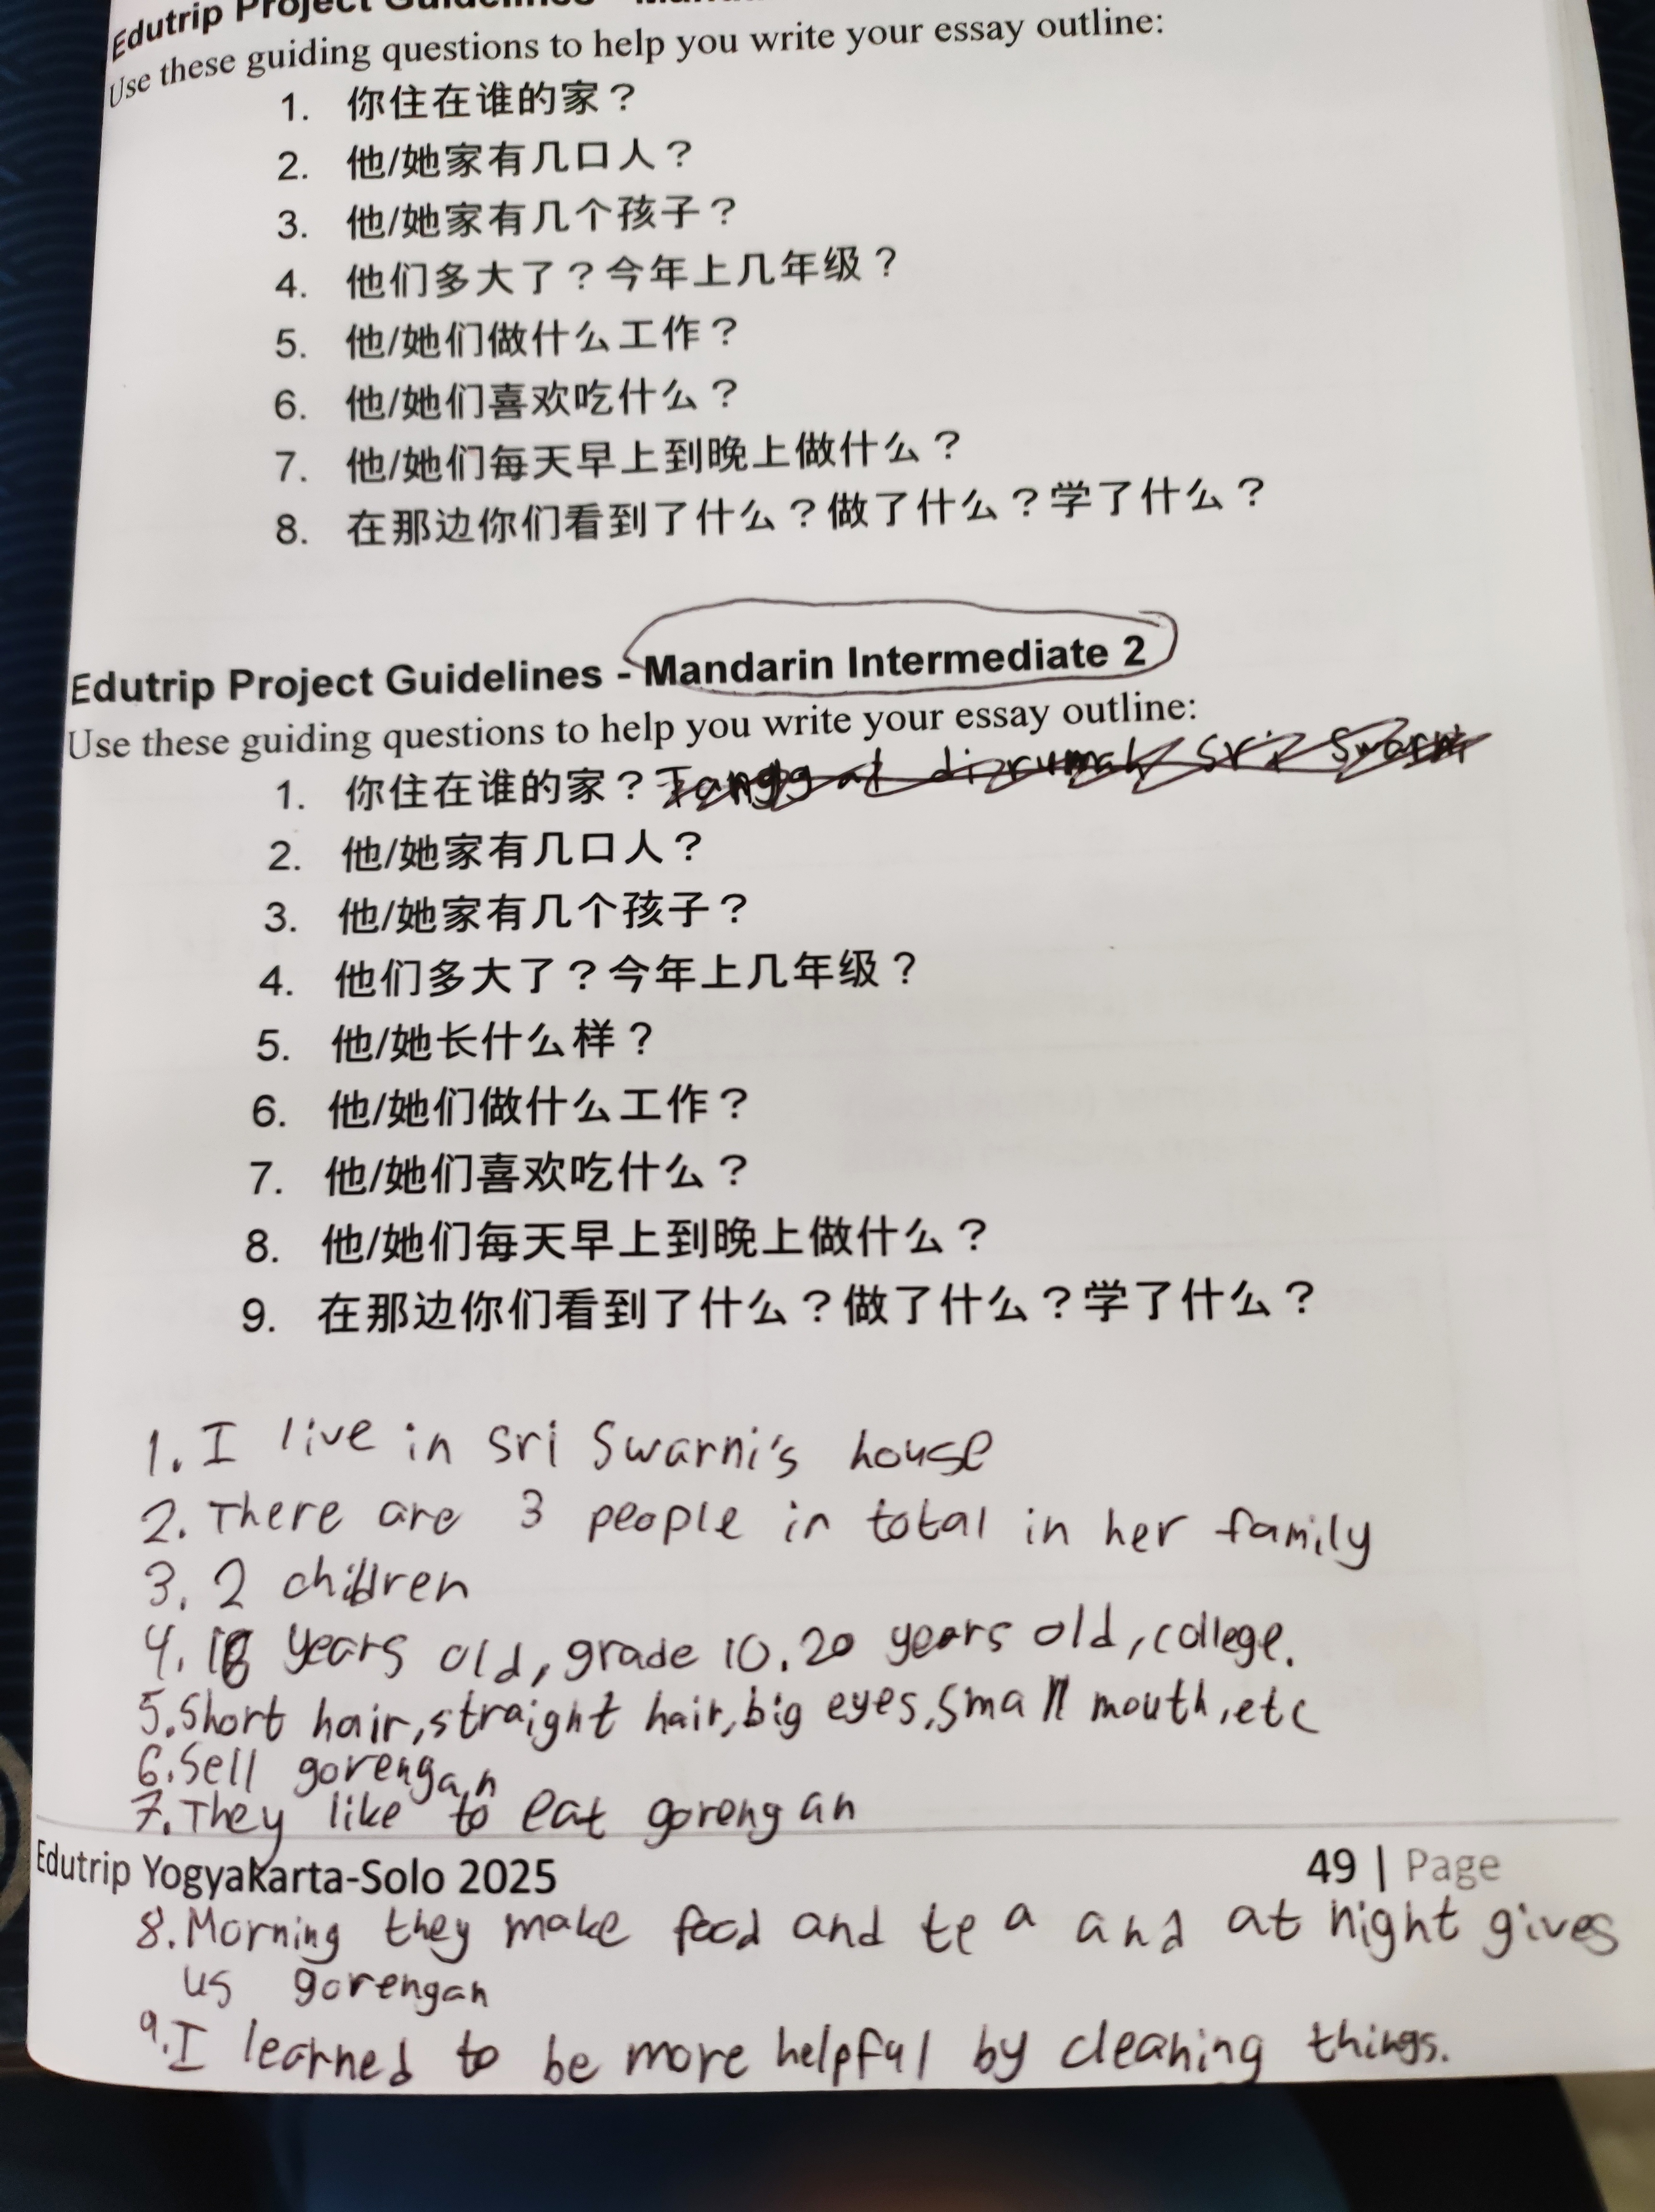 Edutrip Project Guidelines - Manda
Use these guiding questions to help you write your essay outline:
1. 你住在谁的家？
2. 他/她家有几口人？
3. 他/她家有几个孩子？
4. 他们多大了？今年上几年级？
5. 他/她们做什么工作？
6. 他/她们喜欢吃什么？
7. 他/她们每天早上到晚上做什么？
8. 在那边你们看到了什么？做了什么？学了什么？
Edutrip Project Guidelines - Mandarin Intermediate 2
Use these guiding questions to help you write your essay outline:
1. 你住在谁的家？
2. 他/她家有几口人？
3. 他/她家有几个孩子？
4. 他们多大了？今年上几年级？
5. 他/她长什么样？
6. 他/她们做什么工作？
7. 他/她们喜欢吃什么？
8. 他/她们每天早上到晚上做什么？
9. 在那边你们看到了什么？做了什么？学了什么？
1. I live in Sri Swarni's house
2. There are 3 people in total in her family
3. 2 children
4. 18 years old, grade 10. 20 years old, college.
5. Short hair, straight hair, big eyes, small mouth, etc
6. Sell gorengan
7. They like to eat gorengan
Edutrip Yogyakarta-Solo 2025 49 | Page
8. Morning they make food and tea and at night gives
us gorengan
9. I learned to be more helpful by cleaning things.